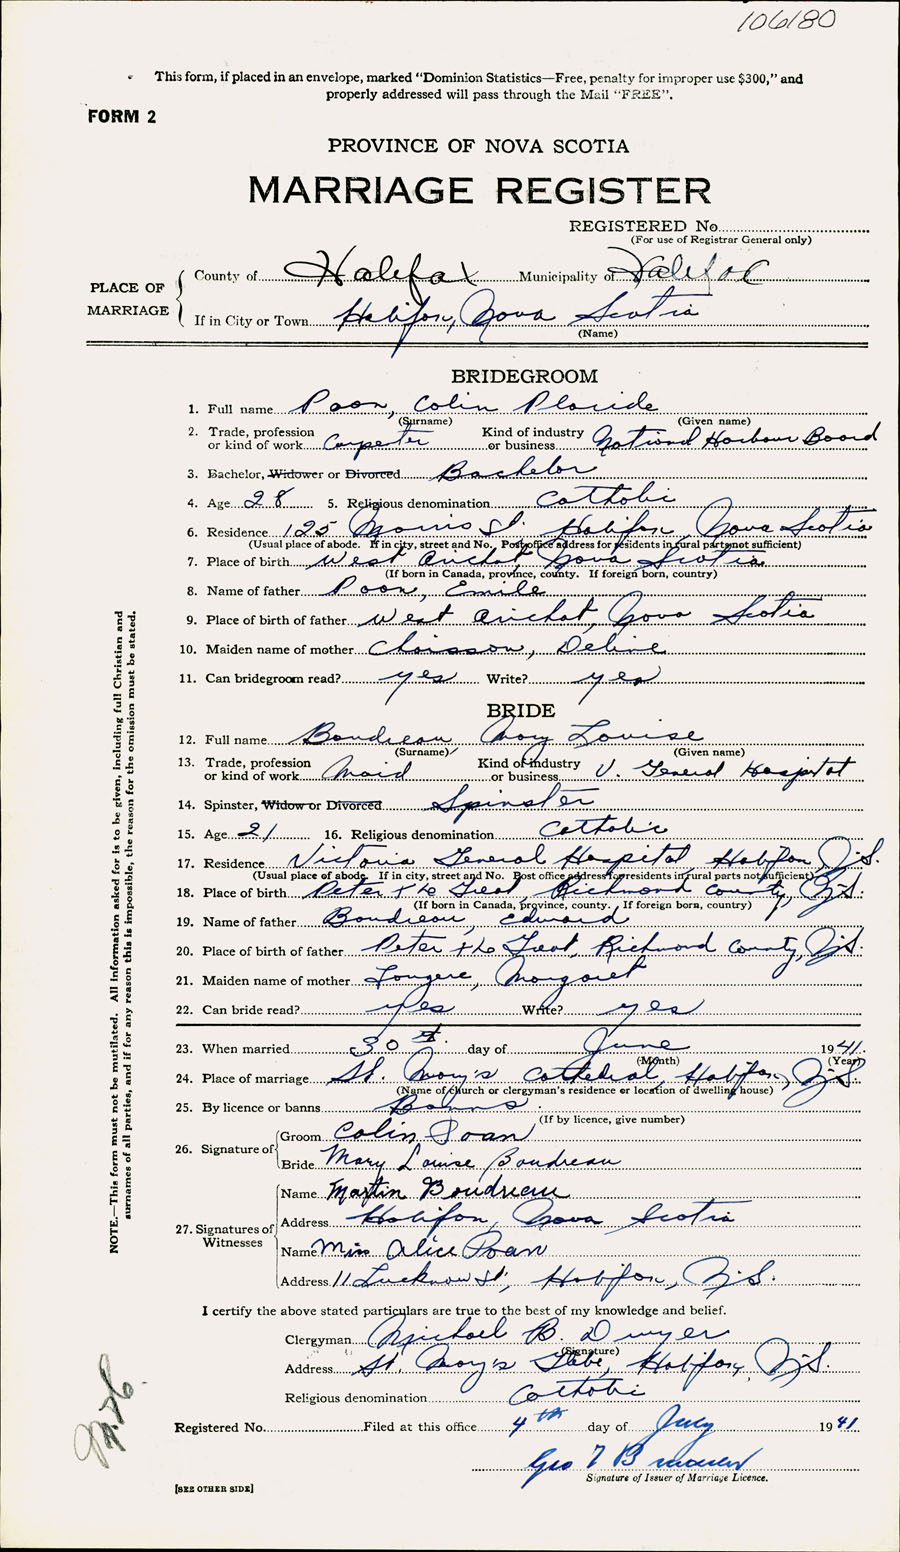 106180
This form, if placed in an envelope, marked "Dominion Statistics—Free, penalty for improper use $300," and
properly addressed will pass through the Mail "FREE".
FORM 2
PROVINCE OF NOVA SCOTIA
MARRIAGE REGISTER
REGISTERED No.
(For use of Registrar General only)
PLACE OF MARRIAGE
County of Halifax Municipality of Halifax
If in City or Town Halifax, Nova Scotia
(Name)
BRIDEGROOM
1. Full name Poan, Colin Placide
(Surname) (Given name)
2. Trade, profession or kind of work Carpenter Kind of industry or business National Harbour Board
3. Bachelor, Widower or Divorced Bachelor
4. Age 28 5. Religious denomination Catholic
6. Residence 125 Morris St. Halifax, Nova Scotia
(Usual place of abode. If in city, street and No. Post office address for residents in rural parts not sufficient)
7. Place of birth West Arichat, Nova Scotia
(If born in Canada, province, county. If foreign born, country)
8. Name of father Poan, Emile
9. Place of birth of father West Arichat, Nova Scotia
10. Maiden name of mother Chaisson, Deline
11. Can bridegroom read? yes Write? yes
BRIDE
12. Full name Boudreau Mary Louise
(Surname) (Given name)
13. Trade, profession or kind of work Maid Kind of industry or business V. General Hospital
14. Spinster, Widow or Divorced Spinster
15. Age 21 16. Religious denomination Catholic
17. Residence Victoria General Hospital, Halifax, N.S.
(Usual place of abode. If in city, street and No. Post office address for residents in rural parts not sufficient)
18. Place of birth Peter the Great, Richmond County, N.S.
(If born in Canada, province, county. If foreign born, country)
19. Name of father Boudreau, Edward
20. Place of birth of father Peter the Great, Richmond County, N.S.
21. Maiden name of mother Margaret
22. Can bride read? yes Write? yes
23. When married 30th day of June 1941
(Month) (Year)
24. Place of marriage St. Mary's Cathedral, Halifax, N.S.
(Name of church or clergyman's residence or location of dwelling house)
25. By licence or banns Banns
(If by licence, give number)
26. Signature of
Groom Colin Poan
Bride Mary Louise Boudreau
27. Signatures of Witnesses
Name Martin Boudreau
Address Halifax, Nova Scotia
Name Miss Alice Poan
Address 11 Lucknow St., Halifax, N.S.
I certify the above stated particulars are true to the best of my knowledge and belief.
Clergyman Michael B. Dwyer
(Signature)
Address St. Mary's Glebe, Halifax, N.S.
Religious denomination Catholic
Registered No. Filed at this office 4th day of July 1941
Geo
Signature of Issuer of Marriage Licence.
[SEE OTHER SIDE]
NOTE.—This form must not be mutilated. All information asked for is to be given, including full Christian and
surnames of all parties, and if for any reason this is impossible, the reason for the omission must be stated.